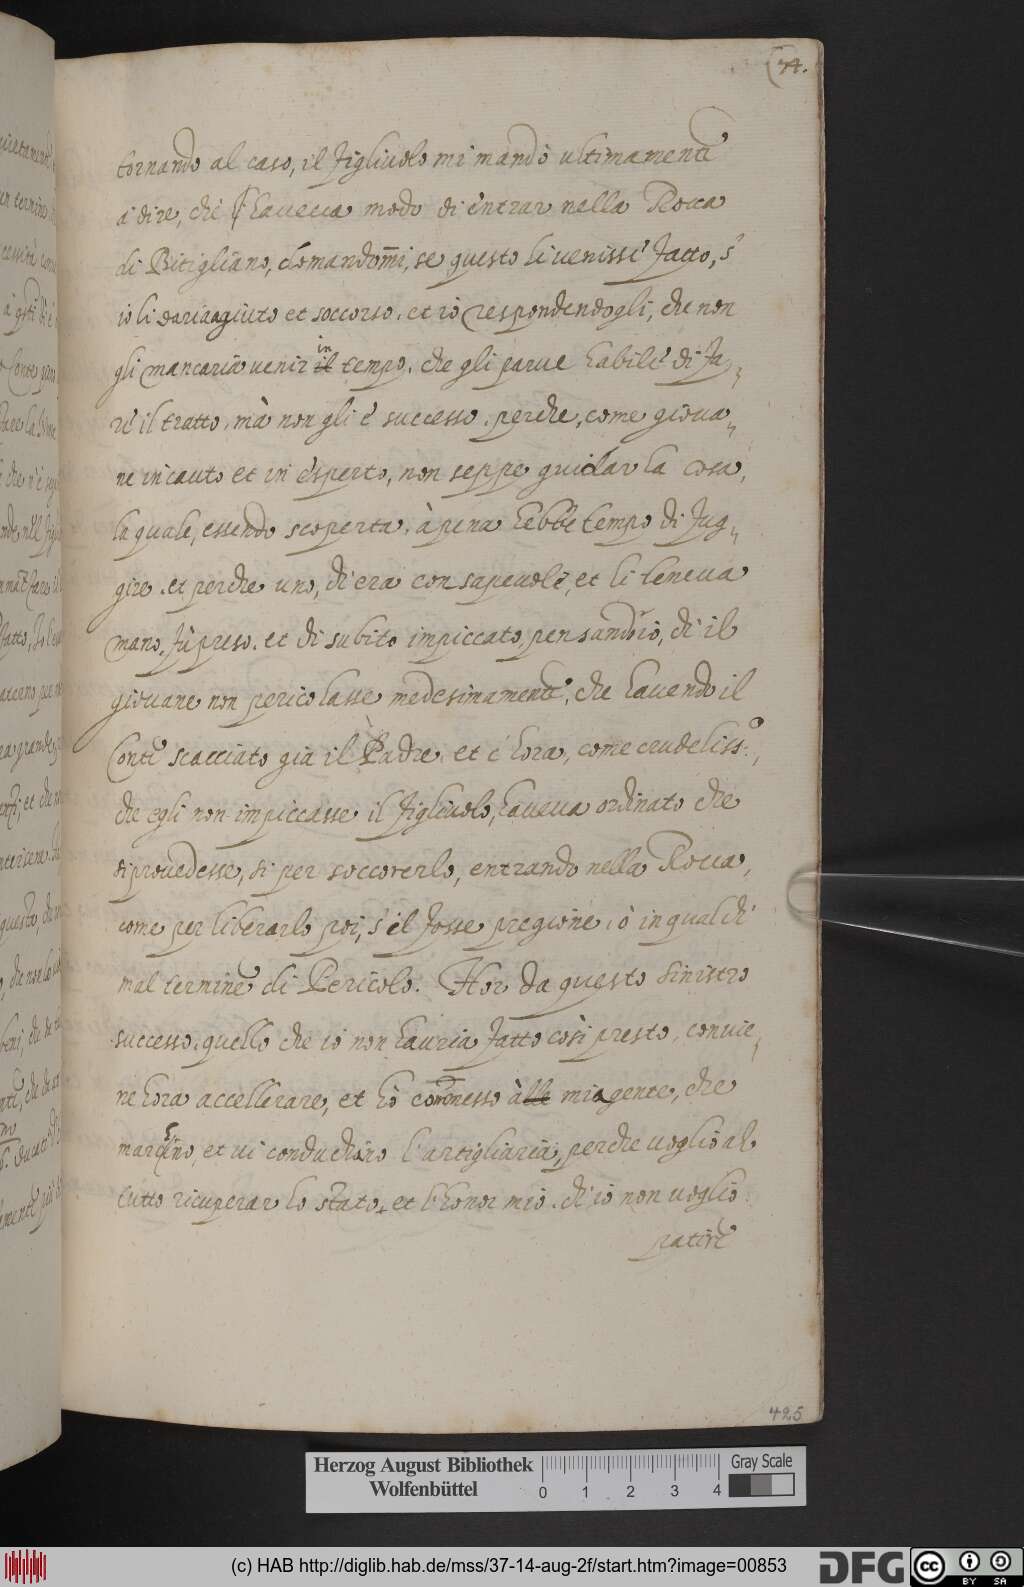 74.
tornando al caso, il figliuolo mi mandò ultimamente
à dire, che haveva modo di entrar nella Rocca
di Pitigliano, domandomi, se questo li venissi fatto, s'
io li daria agiuto et soccorso. et io respondendogli, che non
gli mancaria venir in il tempo. che gli parve habile di fa-
re il tratto, mà non gli è successo. perche, come giova-
ne incauto et in esperto, non seppe guidar la cosa,
la quale, essendo scoperta. à pena hebbe tempo di fug-
gire. et perche uno, ch'era consapevole, et li teneva
mano, fù preso. et di subito impiccato. pensand'io, ch'il
giovane non pericolasse medesimamente, che havendo il
Conte scacciato già il Padre. et è hora, come crudeliss:o,
che egli non impiccasse il figliuolo, haveva ordinato che
si provedesse, si per soccorerlo, entrando nella Rocca,
come per liberarlo poi, s'el fosse pregione, ò in qualch'
mal termine di Pericolo. Hor da questo sinistro
successo. quello che io non hauria fatto così presto, convie-
ne hora accellerare, et hò commesso à lle mia gente, che
marchino, et vi conduchino l'artigliaria, perche voglio al
tutto ricuperar lo stato, et l'honor mio. ch'io non voglio
patire
425
Herzog August Bibliothek
Wolfenbüttel
0 1 2 3 4
Gray Scale
(c) HAB http://diglib.hab.de/mss/37-14-aug-2f/start.htm?image=00853
DFG
cc BY SA